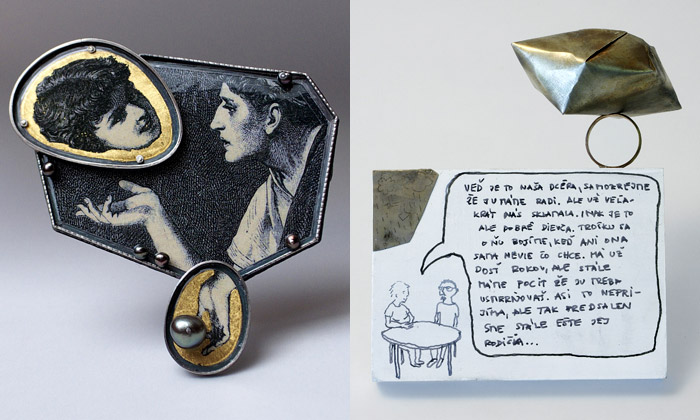 VEĎ JE TO NAŠA DCÉRA, SAMOZREJME
ŽE JU MÁME RADI. ALE UŽ VEĽA-
KRÁT NÁS SKLAMALA. INAK JE TO
ALE DOBRÉ DIEVČA. TROŠKU SA
O ŇU BOJÍME, KEĎ ANI ONA
SAMA NEVIE ČO CHCE. MÁ UŽ
DOSŤ ROKOV, ALE STÁLE
MÁME POCIT ŽE JU TREBA
USMERŇOVAŤ. ASI TO NEPRI-
JÍMA, ALE TAK PREDSA LEN
SME STÁLE EŠTE JEJ
RODIČIA...